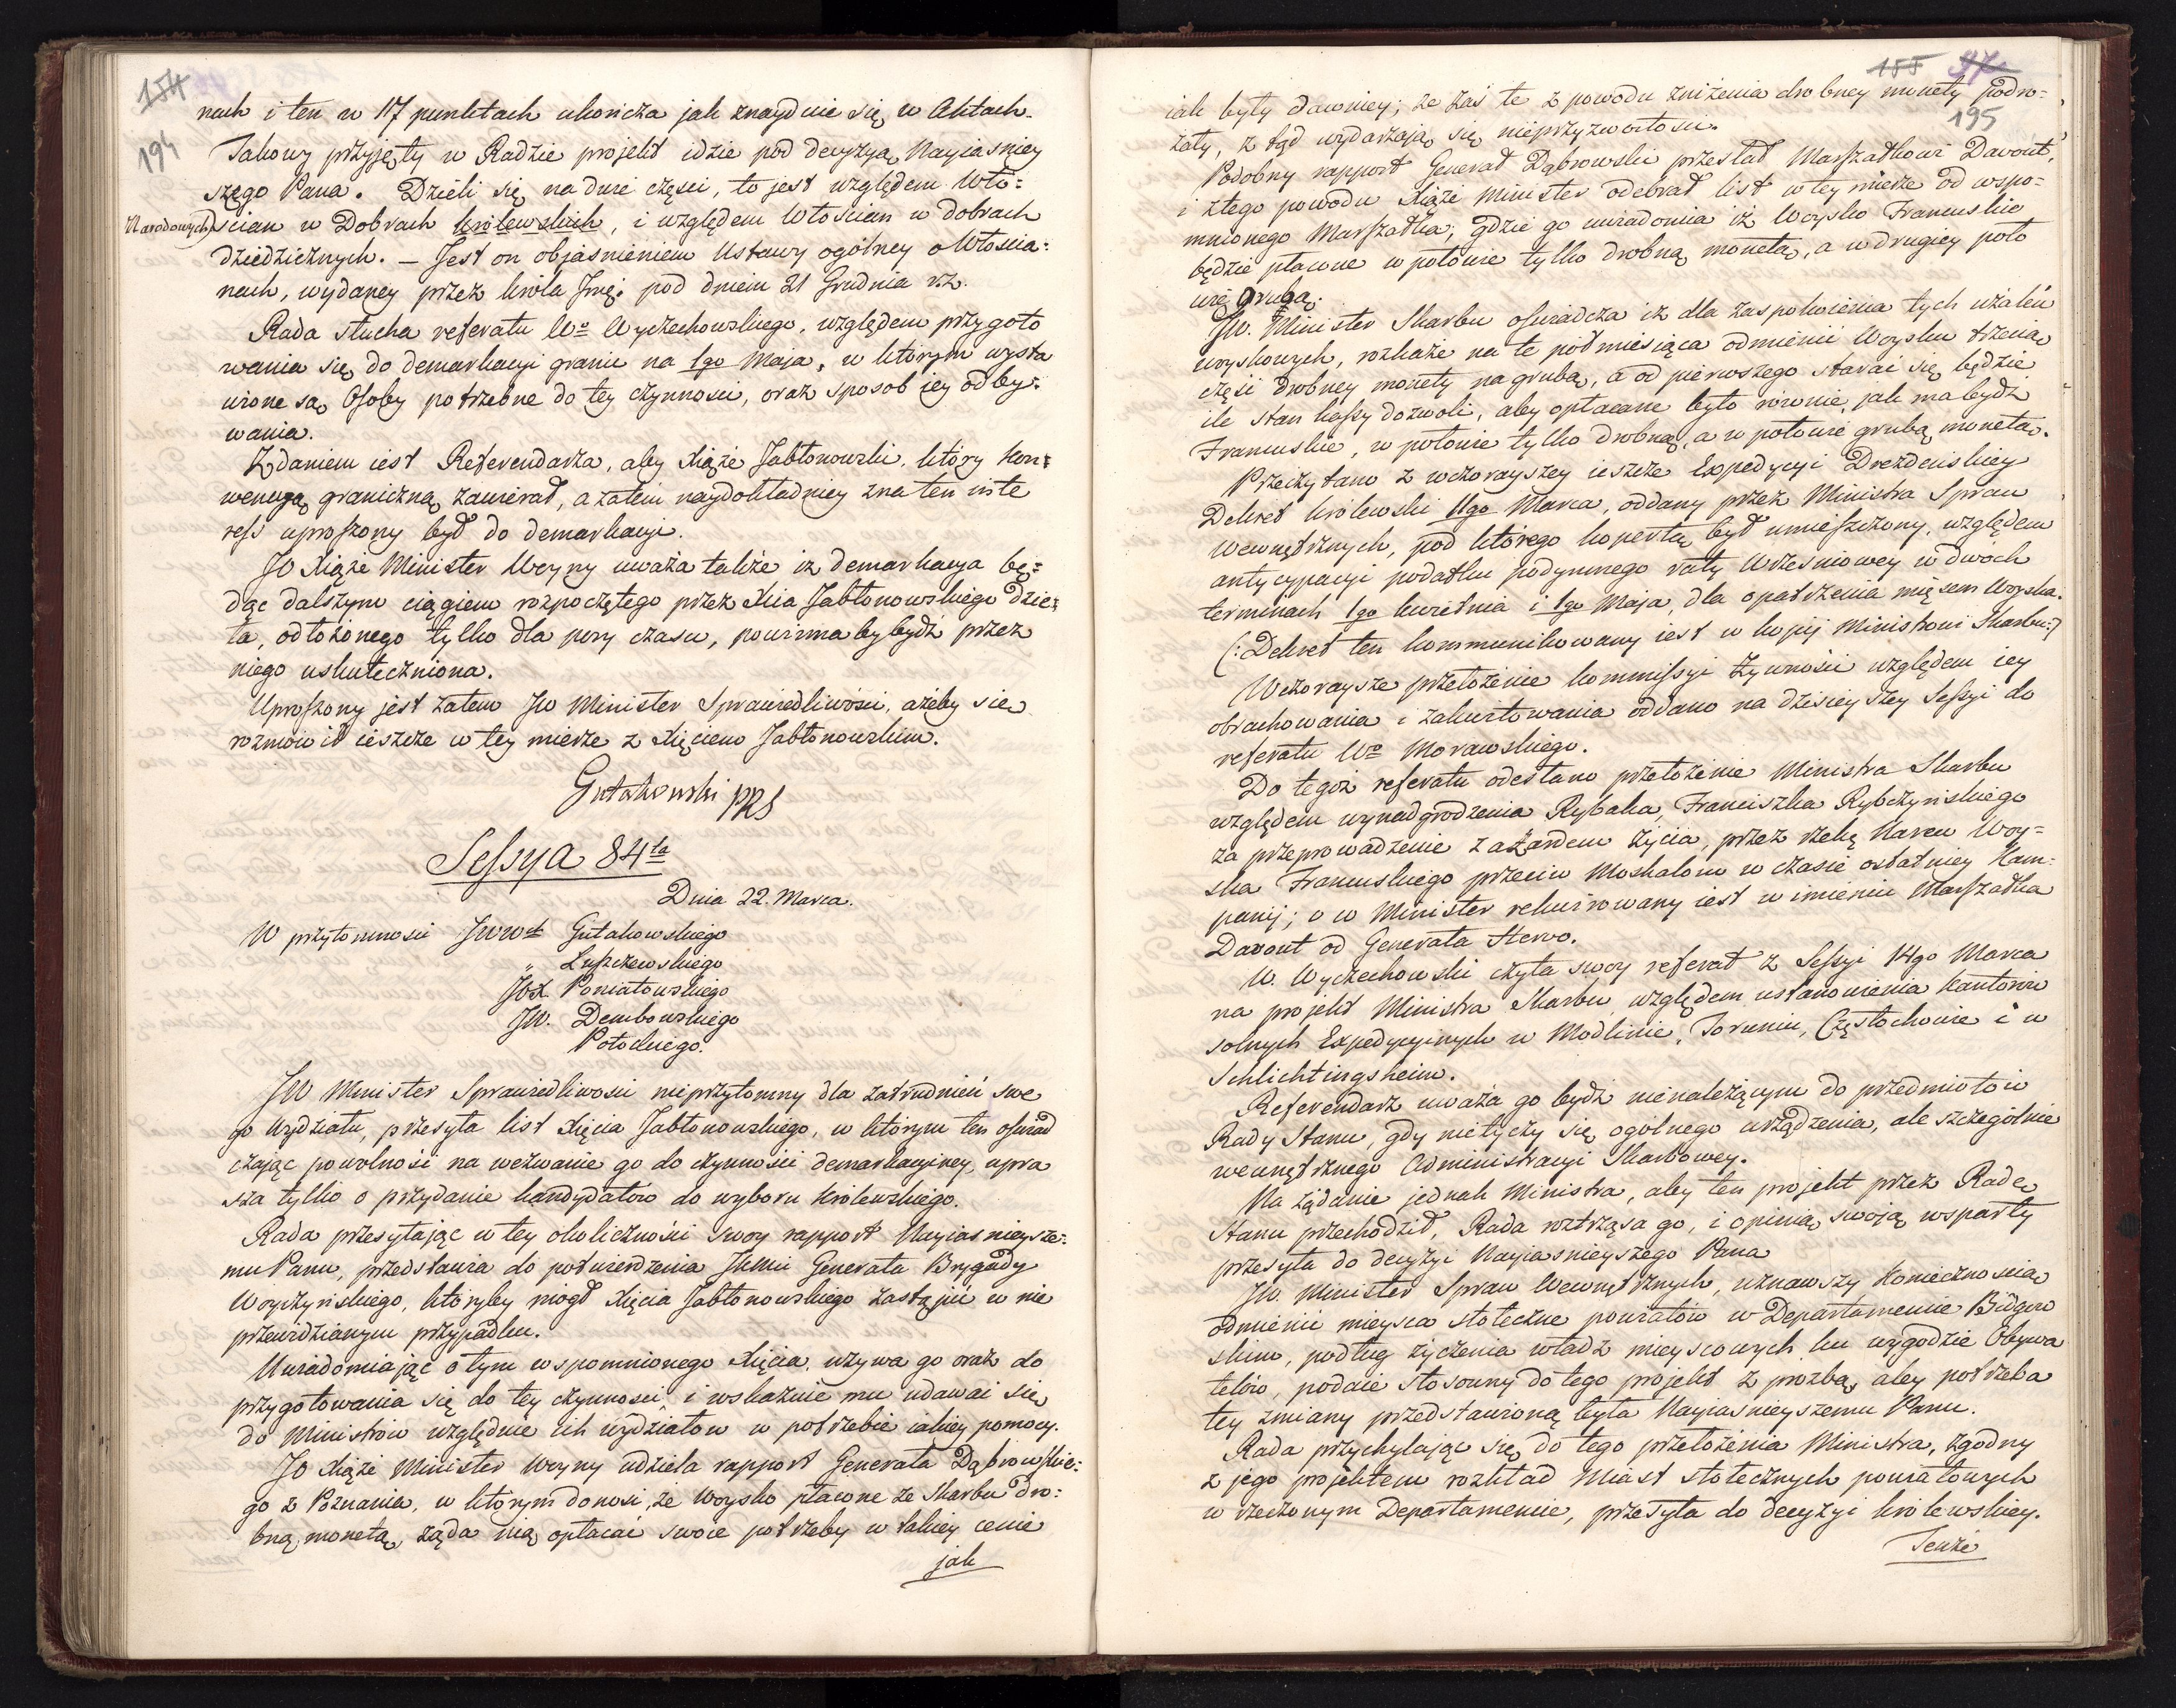 154
194
nach i ten w 117 punktach ukończa jak znayduie się w Aktach.
Takowy przyjęty w Radzie projekt idzie pod decyzyą Nayiaśniey
szego Pana. Dzieli się na dwie części, to jest względem Wło=
Narodowych) ścian w Dobrach królewskich, i względem Włościan w dobrach
dziedzicznych. — Jest on objaśnieniem Ustawy ogólney o Włościa=
nach, wydaney przez króla Jmę. pod dniem 21 Grudnia r.z.
Rada słucha referatu Wo Wyczechowskiego, względem przygoto
wania się do demarkacyi granic na 1go Maja, w którym wysta
wione są Osoby potrzebne do tey czynności, oraz sposob iey odby=
wania.
Zdaniem iest Referendarza, aby Xiąże Jabłonowski, który Kon=
wencyą graniczną zawierał, a zatem naydokładniey zna ten inte
ress uproszony był do demarkacyi.
JO Xiąże Minister Woyny uważa także iż demarkacya bę=
dąc dalszym ciągiem rozpoczętego przez Xcia Jabłonowskiego dzie=
ła, odłożonego tylko dla pory czasu, powinna by bydź przez
niego uskuteczniona.
Uproszony jest zatem JW Minister Sprawiedliwości, ażeby się
rozmówił ieszcze w tey mierze z Xięciem Jabłonowskim.
Gutakowski PRS
Sessya 84ta
Dnia 22. Marca.
W przytomności JWWch Gutakowskiego
„ Łuszczewskiego
JOX. Poniatowskiego
JW. Dembowskiego
Potockiego.
JW Minister Sprawiedliwości nieprzytomny dla zatrudnień swe
go Wydziału, przesyła list Xięcia Jabłonowskiego, w którym ten oświad
czając powolność na wezwanie go do czynności demarkacyiney, upra
sza tylko o przydanie kandydatów do wyboru królewskiego.
Rada przesyłając w tey okoliczności swoy rapport Nayiaśniejsze=
mu Panu, przedstawia do potwierdzenia Generała Brygady
Woyczyńskiego, któryby mógł Xięcia Jabłonowskiego zastąpić w nie
przewidzianym przypadku.
Uwiadomiając o tym wspomnionego Xięcia, używa go oraz do
przygotowania się do tey czynności, i wskazuie mu udawać się
do Ministrów względnie ich wydziałów w potrzebie iakiey pomocy.
JO Xiąże Minister Woyny udziela rapport Generała Dąbrowskie=
go z Poznania, w którym donosi, że Woysko płacone ze Skarbu dro=
bną monetą, żąda nią opłacać swoie potrzeby w takiey cenie
jak
155
195
iak były dawniey; że zaś te z powodu zniżenia drobney monety podro=
żały, z tąd wydarzają się nieprzyzwoitości.
Podobny rapport Generał Dąbrowski przesłał Marszałkowi Davout,
i z tego powodu Xiąże Minister odebrał list w tey mierze od wspo=
mnionego Marszałka; gdzie go uwiadomia iż Woysko Francuskie
będzie płacone w połowie tylko drobną monetą, a w drugiey poło
wie grubą.
JW. Minister Skarbu oświadcza iż dla zaspokoienia tych użaleń
woyskowych, rozkaże na te pół miesiąca odmienić Woysku trzecią
część drobney monety na grubą, a od pierwszego starać się będzie
ile stan kassy dozwoli, aby opłacane było rownie, jak ma bydź
Francuskie, w połowie tylko drobną, a w połowie grubą monetą.
Przeczytano z wczorayszey ieszcze Expedycyi Drezdeńskiey
Dekret królewski 11go Marca, oddany przez Ministra Spraw
Wewnętrznych, pod którego kopertą był umieszczony, względem
antycypacyi podatku podymnego raty Wrześniowey w dwoch
terminach 1go kwietnia i 1go Maja, dla opatrzenia mięsem Woyska.
(: Dekret ten kommunikowany iest w kopij Ministrowi Skarbu:)
Wczoraysze przełożenie kommissyi Żywności względem iey
obrachowania i zakwitowania oddano na dzisieyszey Sessyi do
referatu Wo Morawskiego.
Do tegoż referatu odesłano przełożenie Ministra Skarbu
względem wynadgrodzenia Rybaka, Franciszka Rybczyńskiego
za przeprowadzenie z azardem życia, przez rzekę Narew Woy=
ska Francuskiego przeciw Moskalom w czasie ostatniey Kam=
panij; o co Minister rekwirowany iest w imieniu Marszałka
Davout od Generała Hervo.
W. Wyczechowski czyta swoy referat z Sessyi 14go Marca
na projekt Ministra Skarbu względem ustanowienia kantorów
solnych Expedycyinych w Modlinie, Toruniu, Częstochowie i w
Schlichtingsheim.
Referendarz uważa go bydź nienależącym do przedmiotów
Rady Stanu, gdy nietyczy się ogólnego urządzenia, ale szczególnie
wewnętrznego Administracyi Skarbowey.
Na żądanie jednak Ministra, aby ten projekt przez Radę
Stanu przechodził, Rada roztrząsa go, i opinią swoją wsparty
przesyła do decyzyi Nayiaśnieyszego Pana
JW. Minister Spraw Wewnętrznych, uznawszy koniecznością
odmienić mieysca stołeczne powiatów w Departamencie Bidgow
skim, podług życzenia władz mieyscowych ku wygodzie Obywa
telów, podaie stosowny do tego projekt z prozbą, aby potrzeba
tey zmiany przedstawioną była Nayiaśnieyszemu Panu.
Rada przychylając się do tego przełożenia Ministra, zgodny
z jego projektem rozkład Miast stołecznych powiatowych
w rzeczonym Departamencie, przesyła do decyzyi królewskiey.
Tenże